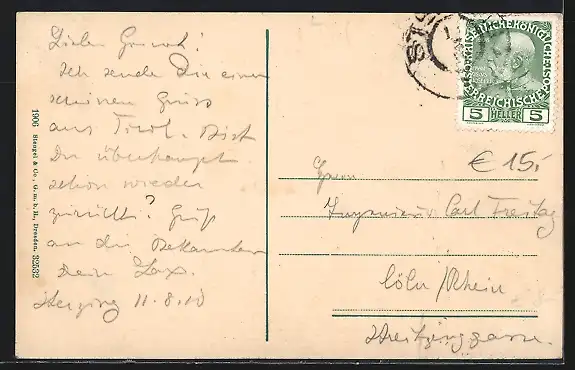 Ich sende Dir einen
schönen Gruss
aus Tirol. Bist
Du überhaupt
schon wieder
zurück? Grüß
an die Bekannten
Dein
11.8.10
1906 Stengel & Co., G. m. b. H., Dresden. 32532
ST
5 HELLER 5
€ 15,-
Herrn
Ingenieur Carl Freitag
Cöln/Rhein